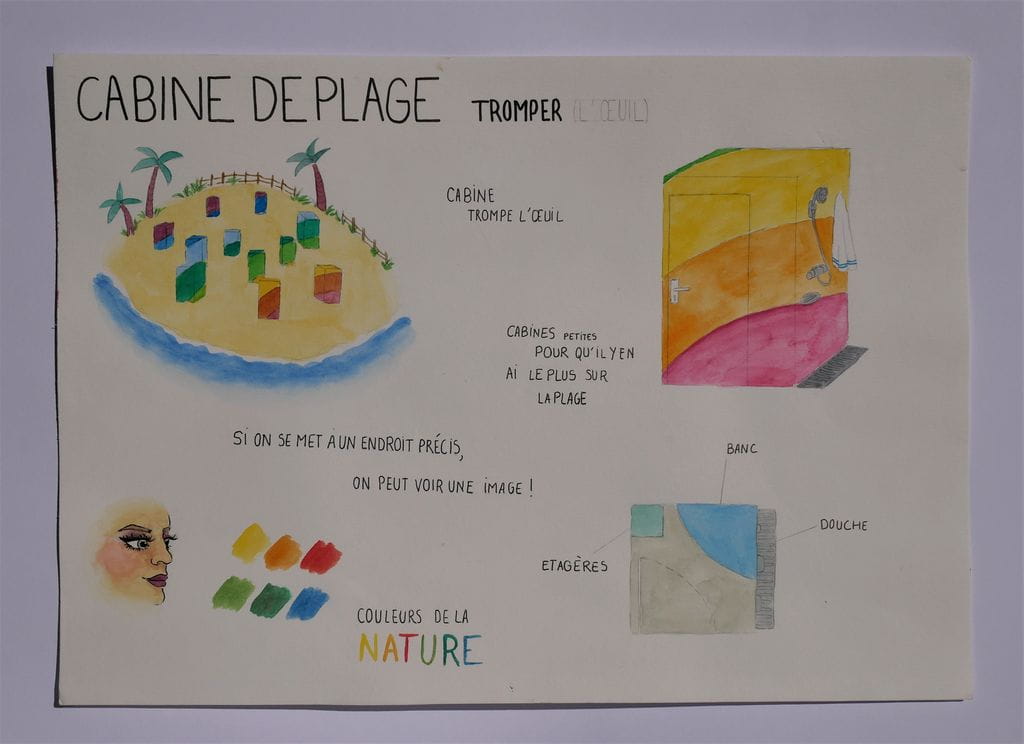 CABINE DE PLAGE TROMPER (L'ŒUIL)
CABINE
TROMPE L'ŒUIL
CABINES PETITES
POUR QU'IL Y EN
AI LE PLUS SUR
LA PLAGE
SI ON SE MET À UN ENDROIT PRÉCIS,
ON PEUT VOIR UNE IMAGE !
BANC
DOUCHE
ETAGÈRES
COULEURS DE LA
NATURE